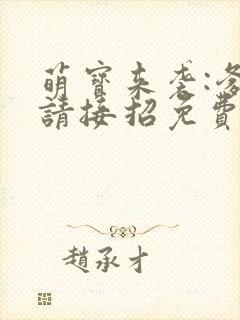 萌寶來袭:爹
請接招免費
趙承才